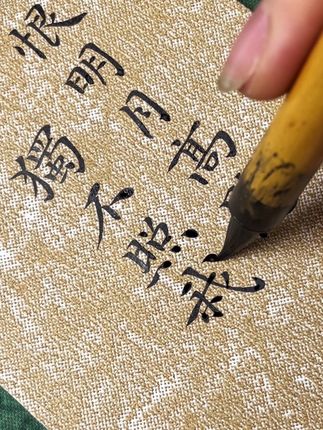 恨明月高
獨不照我